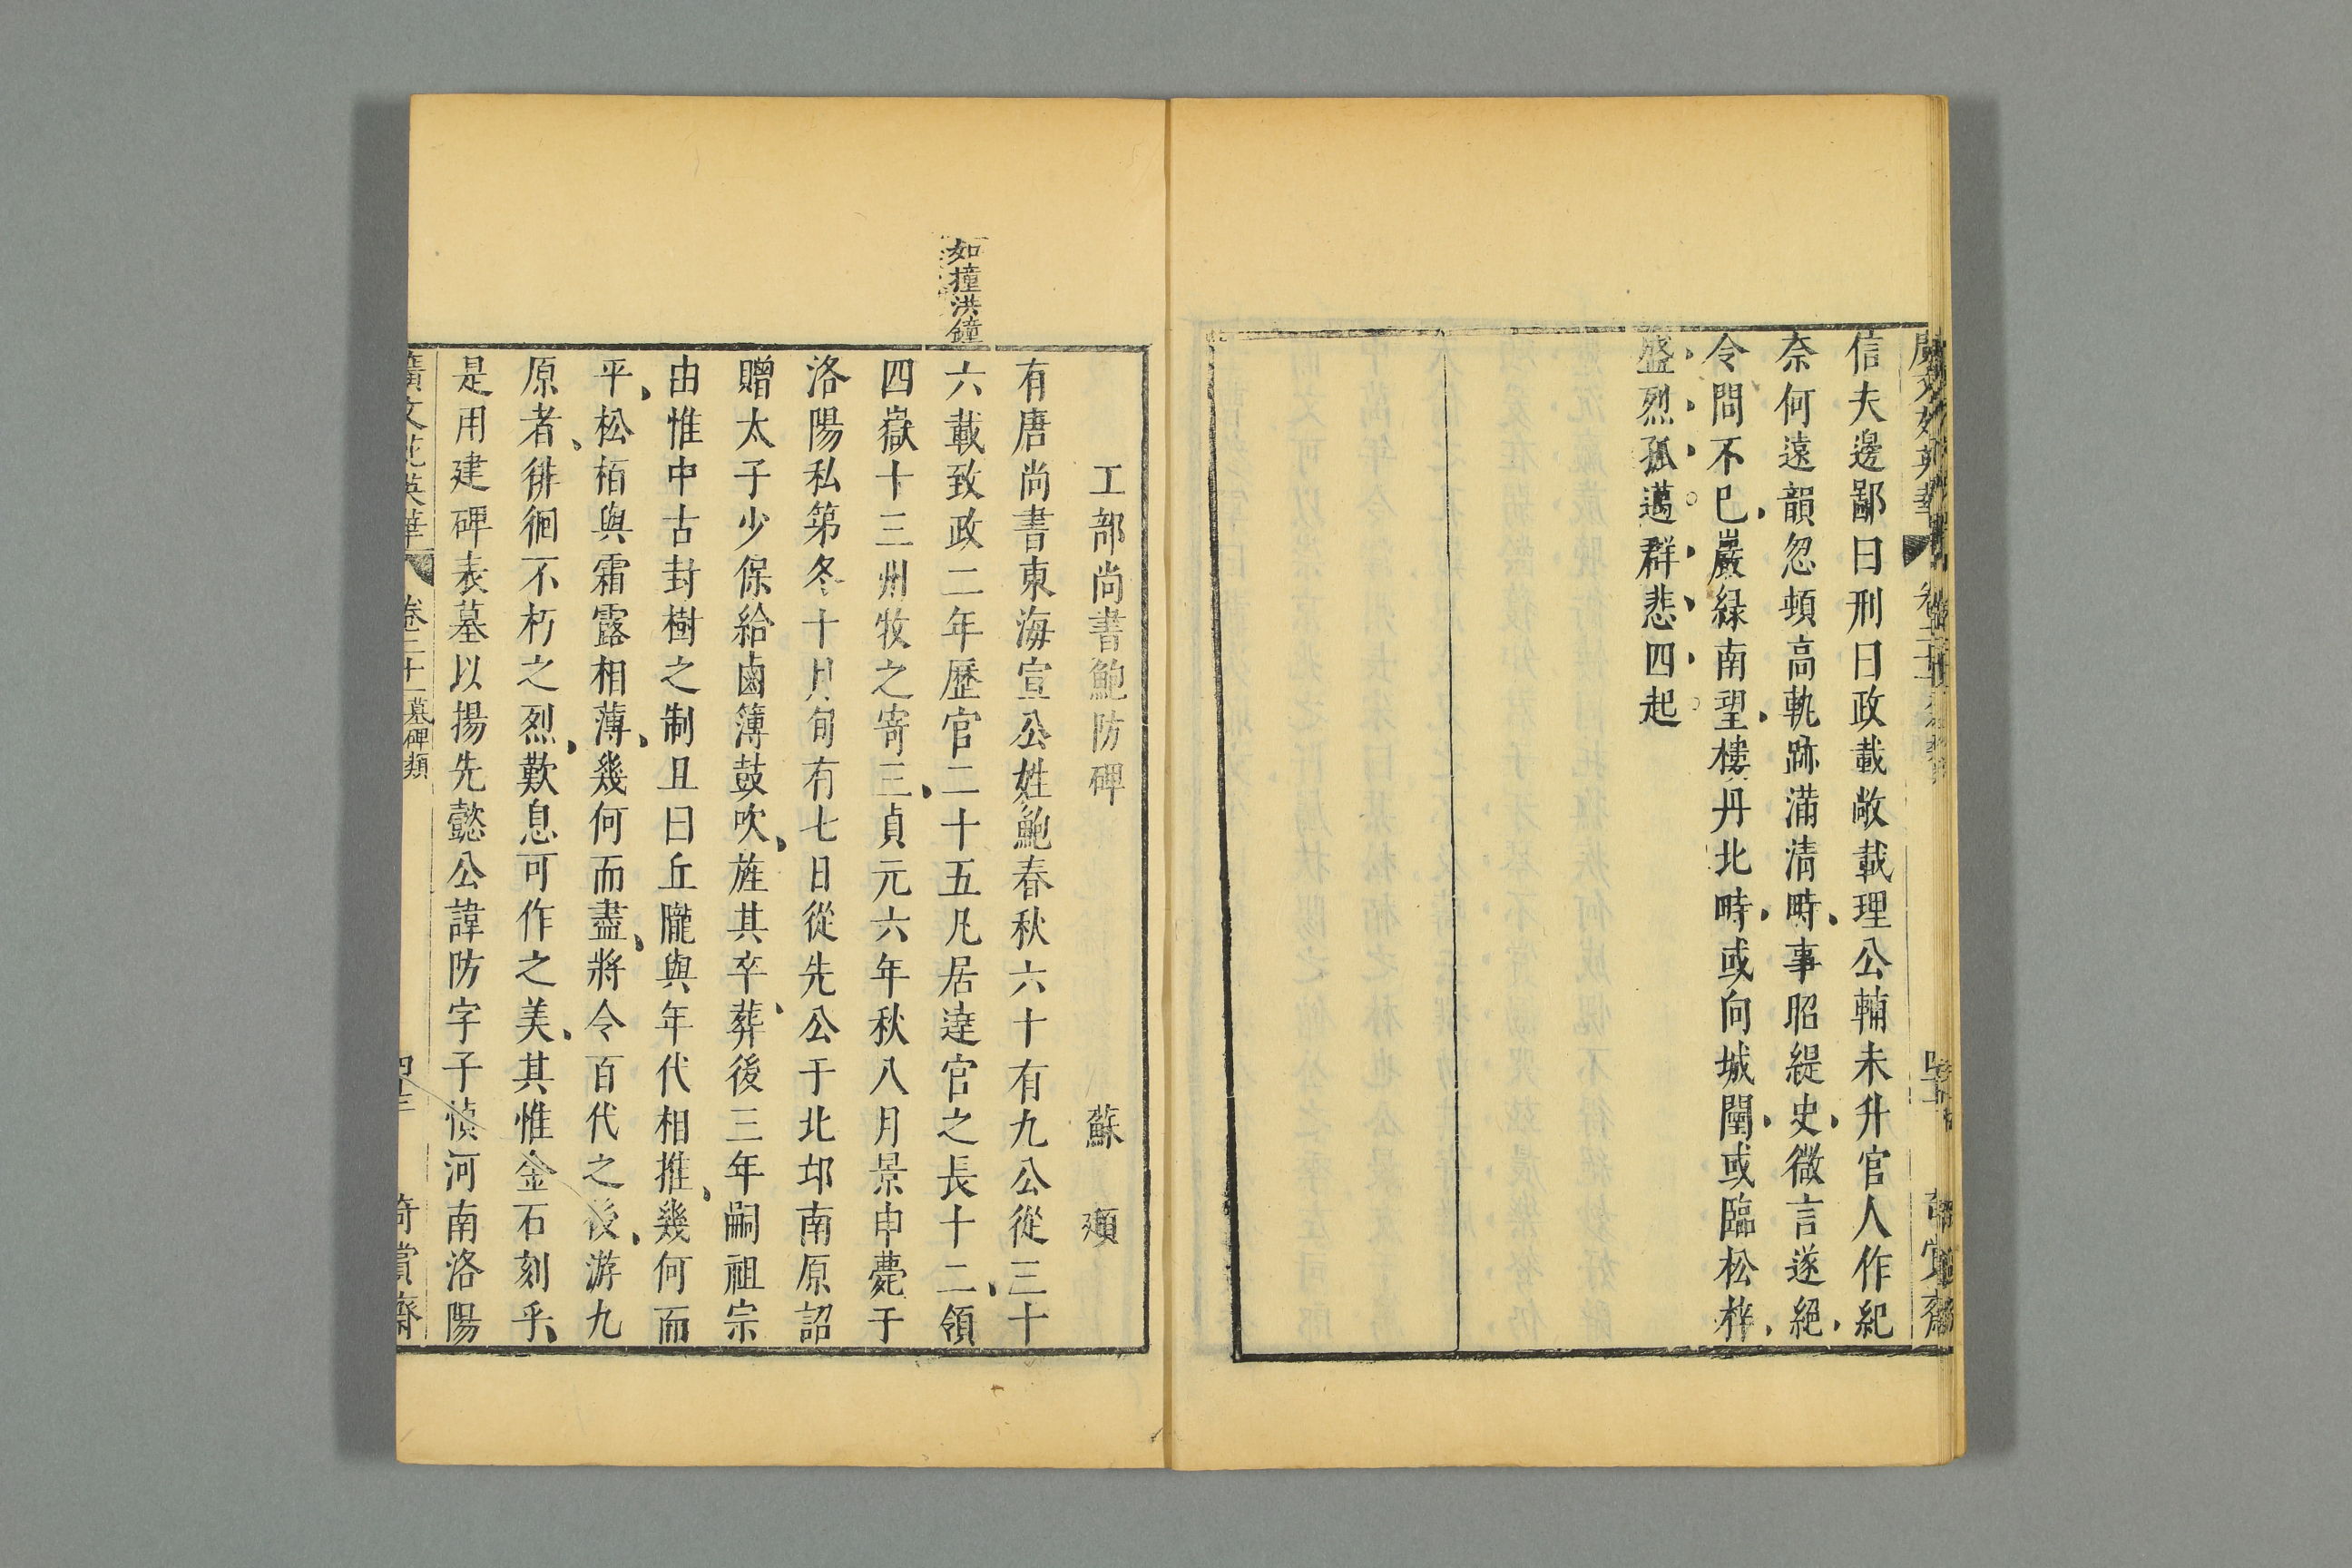 信夫邊鄙日刑日政載敞載理公輔未升官人作紀
奈何遠韻忽頓高軌跡滿清時事昭緹史微言遂絕
令問不已巖緑南望樓丹北時或向城闉或臨松梓
盛烈孤邁群悲四起
工部尚書鮑防碑 蘇
如撞洪鐘
有唐尚書東海宣公姓鮑春秋六十有九公從三十
六載致政二年歷官二十五凡居達官之長十二領
四嶽十三州牧之寄三貞元六年秋八月景申薨于
洛陽私第冬十月旬有七日從先公于北邙南原詔
贈太子少保給鹵簿鼓吹旌其卒葬後三年嗣祖宗
由惟中古封樹之制且曰丘隴與年代相推幾何而
平松栢與霜露相薄幾何而盡將令百代之後游九
原者徘徊不朽之烈歎息可作之美其惟金石刻乎
是用建碑表墓以揚先懿公諱防字子慎河南洛陽
廣文苑英華 卷二十一墓碑類 四十三 奇賞齋